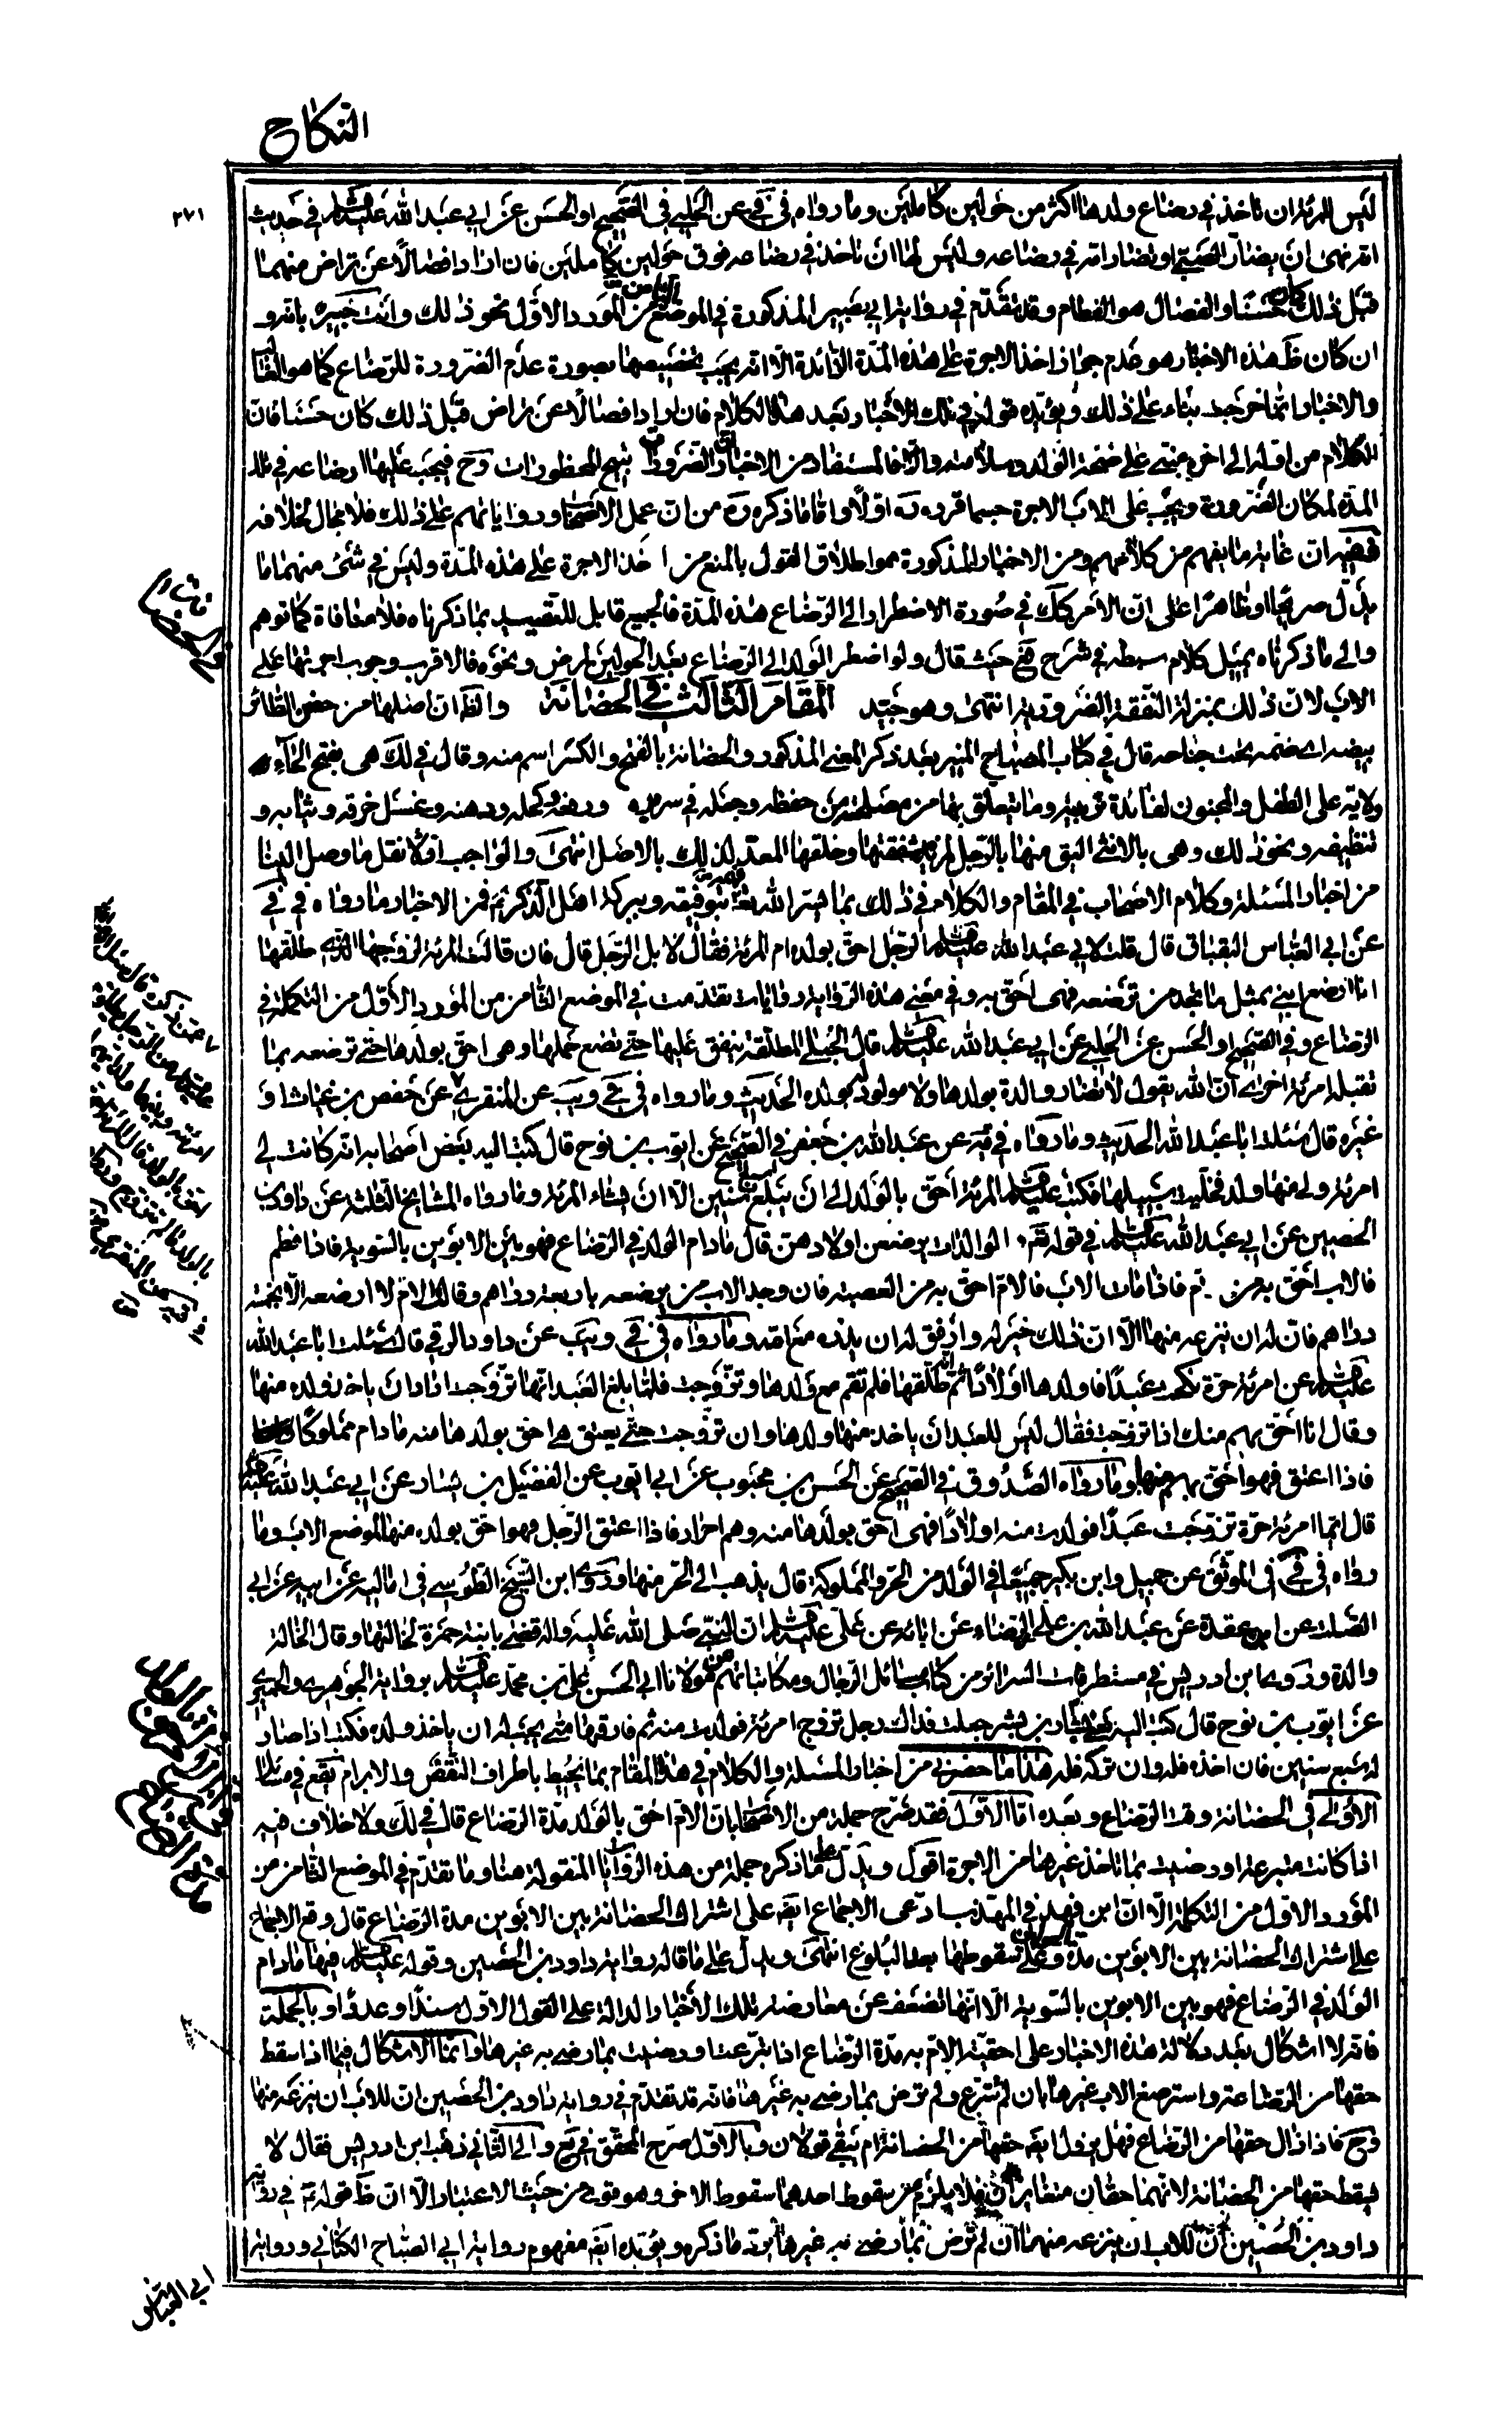 النكاح
٢٧١
ليس للمرئة ان تاخذ في رضاع ولدها اكثر من حولين كاملين وما رواه في في عن الحلبي في الصحيح او الحسن عن ابي عبد الله عليه السلام في حديث
انه نهى ان يضار الصبي او تضار امه في رضاعه وليس لها ان تاخذ في رضاعه فوق حولين كاملين فان ارادا فصالا عن تراض منهما
قبل ذلك كان حسنا والفصال هو الفطام وقد تقدم في رواية ابي بصير المذكورة في الموضع الثامن من المورد الاول نحو ذلك وانت خبير بانه و
ان كان ظ هذه الاخبار هو عدم جواز اخذ الاجرة على هذه المدة الزائدة الا انه يجب تخصيصها بصورة عدم الضرورة للرضاع كما هو الغالب
والاخبار انما خرجت بناء على ذلك ويؤيده قوله في تلك الاخبار بعد هذا الكلام فان ارادا فصالا عن تراض قبل ذلك كان حسنا فان
الكلام من اوله الى اخره مبني على صحة الولد وسلامته والا فالمستفاد من الاخبار ان الضرورات تبيح المحظورات وح فيجب عليها ارضاعه في تلك
المدة لمكان الضرورة ويجب على الاب الاجرة حسبما قرره ره اولا واما ما ذكره ره من ان عمل الاصحاب ورواياتهم على ذلك فلا مجال لخلافه
ففيه ان غاية ما يفهم من كلامهم ومن الاخبار المذكورة هو اطلاق القول بالمنع من اخذ الاجرة على هذه المدة وليس في شئ منهما ما
يدل صريحا او ظاهرا على ان الامر كك في صورة الاضطرار الى الرضاع هذه المدة فالجميع قابل للتقييد بما ذكرناه فلا منافاة كما توهم
والى ما ذكرناه يميل كلام سبطه في شرح فع حيث قال ولو اضطر الولد الى الرضاع بعد الحولين لمرض ونحوه فالاقرب وجوب اجرتها على
الاب لان ذلك بمنزلة النفقة الضرورية انتهى وهو جيد المقام الثالث في الحضانة والظ ان اصلها من حضن الطائر
بيضه اي ضمه تحت جناحه قال في كتاب المصباح المنير بعد ذكر المعنى المذكور والحضانة بالفتح والكسر اسم منه وقال في لك هي بفتح الحاء
ولاية على الطفل والمجنون لفائدة تربيته وما يتعلق بها من مصلحته من حفظه وجعله في سريره ورفعه وكحله ودهنه وغسل خرقه وثيابه و
تنظيفه ونحو ذلك وهي بالانثى اليق منها بالرجل لمزيد شفقتها وخلقها المعد لذلك بالاصل انتهى والواجب اولا نقل ما وصل الينا
من اخبار المسئلة وكلام الاصحاب في المقام والكلام في ذلك بما يسر الله تعالى فهمه بتوفيقه وبركة اهل الذكر فمن الاخبار ما رواه في في
عن ابي العباس البقباق قال قلت لابي عبد الله عليه السلام الرجل احق بولده ام المرئة فقال لا بل الرجل قال فان قالت المرئة لزوجها الذي طلقها
انا ارضع ابني بمثل ما تجد من ترضعه فهي احق به وفي معنى هذه الرواية روايات تقدمت في الموضع الثامن من المورد الاول من التكملة في
الرضاع وفي الصحيح او الحسن عن الحلبي عن ابي عبد الله عليه السلام قال الحبلى المطلقة ينفق عليها حتى تضع حملها وهي احق بولدها حتى ترضعه بما
تقبله امرئة اخرى ان الله يقول لا تضار والدة بولدها ولا مولود له بولده الحديث وما رواه في في ويب عن المنقري عن حفص بن غياث او
غيره قال سئلت ابا عبد الله الحديث وما رواه في يه عن عبد الله بن جعفر في الصحيح عن ايوب بن نوح قال كتب اليه بعض اصحابه انه كانت لي
امرئة ولي منها ولد فخليت سبيلها فكتب عليه السلام المرئة احق بالولد الى ان يبلغ سبع سنين الا ان يشاء المرئة وما رواه المشايخ الثلثة عن داود بن
الحصين عن ابي عبد الله عليه السلام في قوله تع الوالدات يرضعن اولادهن قال ما دام الولد في الرضاع فهو بين الابوين بالسوية فاذا فطم
فالاب احق به من الام فاذا مات الاب فالام احق به من العصبة فان وجد الاب من يرضعه باربعة دراهم وقالت الام لا ارضعه الا بخمسة
دراهم فان له ان ينزعه منها الا ان ذلك خير له وارفق له ان يذره مع امه وما رواه في في ويب عن داود الرقي قال سئلت ابا عبد الله
عليه السلام عن امرئة حرة نكحت عبدا فاولدها اولادا ثم انه طلقها فلم تقم مع ولدها وتزوجت فلما بلغ العبد انها تزوجت اراد ان ياخذ ولده منها
وقال انا احق بهم منك اذا تزوجت فقال ليس للعبد ان ياخذ منها ولدها وان تزوجت حتى يعتق هي احق بولدها منه ما دام مملوكا
فاذا اعتق فهو احق بهم منها وما رواه الصدوق في الصحيح عن الحسن بن محبوب عن ابي ايوب عن الفضيل بن يسار عن ابي عبد الله عليه السلام
قال ايما امرئة حرة تزوجت عبدا فولدت منه اولادا فهي احق بولدها منه وهم احرار فاذا اعتق الرجل فهو احق بولده منها لموضع الاب وما
رواه في في في الموثق عن جميل وابن بكير جميعا في الولد من الحر والمملوكة قال يذهب الى الحر منهما وروى ابن الشيخ الطوسي في اماليه عن ابيه عن ابي
الصلت عن ابن عقدة عن عبد الله بن علي عن الرضاء عن ابائه عن علي عليه السلام ان النبي صلى الله عليه واله قضى بابنة حمزة لخالتها وقال الخالة
والدة وروى ابن ادريس في مستطرفات السرائر من كتاب مسائل الرجال ومكاتباتهم من مولانا ابي الحسن علي بن محمد عليه السلام برواية الجوهري والحميري
عن ايوب بن نوح قال كتب اليه بشار بن بشر جعلت فداك رجل تزوج امرئة فولدت منه ثم فارقها متى يجب له ان ياخذ ولده فكتب اذا صار
له سبع سنين فان اخذه فله وان تركه فله هذا ما حضرني من اخبار المسئلة والكلام في هذا المقام بما يحيط باطراف النقض والابرام يقع في مسائل
الاولى في الحضانة وقت الرضاع وبعده اما الاول فقد صرح جملة من الاصحاب بان الام احق بالولد مدة الرضاع قال في لك ولا خلاف فيه
اذا كانت متبرعة او رضيت بما تاخذ غيرها من الاجرة اقول ويدل على ما ذكره جملة من هذه الروايات المنقولة هنا وما تقدم في الموضع الثامن من
المورد الاول من التكملة الا ان ابن فهد في المهذب ادعى الاجماع ايضا على اشتراك الحضانة بين الابوين مدة الرضاع قال وقع الاجماع
على اشتراك الحضانة بين الابوين مدة الحولين وعلى سقوطها بعد البلوغ انتهى ويدل على ما قاله رواية داود بن الحصين وقوله عليه السلام فيها ما دام
الولد في الرضاع فهو بين الابوين بالسوية الا انها تضعف عن معارضة تلك الاخبار الدالة على القول الاول سندا وعددا وبالجملة
فانه لا اشكال بعد دلالة هذه الاخبار على احقية الام به مدة الرضاع اذا تبرعت او رضيت بما رضي به غيرها وانما الاشكال فيما اذا سقط
حقها من الرضاعة واسترضع الاب غيرها بان لم تتبرع ولم ترض بما رضي به غيرها فانه قد تقدم في رواية داود بن الحصين ان للاب ان ينزعه منها
وح فاذا زال حقها من الرضاع فهل يزول ايضا حقها من الحضانة ام يبقى قولان وبالاول صرح المحقق في يع والى الثاني ذهب ابن ادريس فقال لا
يسقط حقها من الحضانة لانهما حقان متغايران فلا يلزم من سقوط احدهما سقوط الاخر وهو قوي من حيث الاعتبار الا ان ظ قوله ع في رواية
داود بن الحصين ان للاب ان ينزعه منها ان لم ترض بما رضي به غيرها يرد ما ذكره ويؤيده ايضا مفهوم رواية ابي الصباح الكناني ورواية
ابي العباس